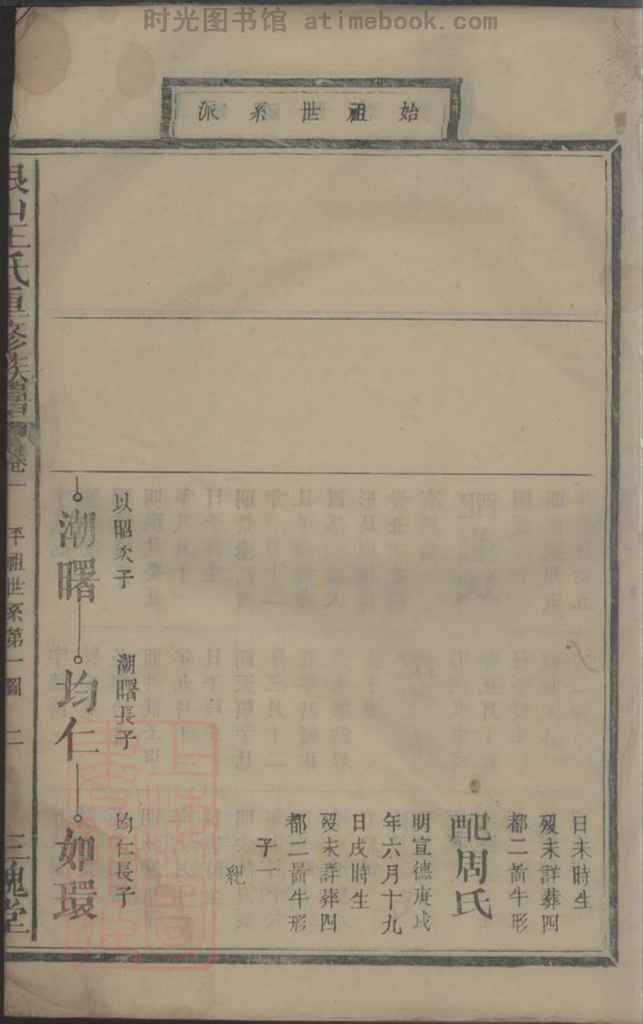 时光图书馆 atimebook.com
始祖世系派
日未時生
歿未詳葬四
都二啚牛形
配周氏
明宣德庚戌
年六月十九
日戌時生
歿未詳葬四
都二啚牛形
子一
紀
以昭次子
潮曙
潮曙長子
均仁
均仁長子
如環
艮山王氏重修族譜
卷一
平祖世系第一圖
二
三槐堂